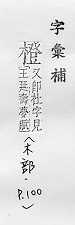 字彙補
橙
又即杜字見
王延壽夢賦
〈木部·
P.100〉